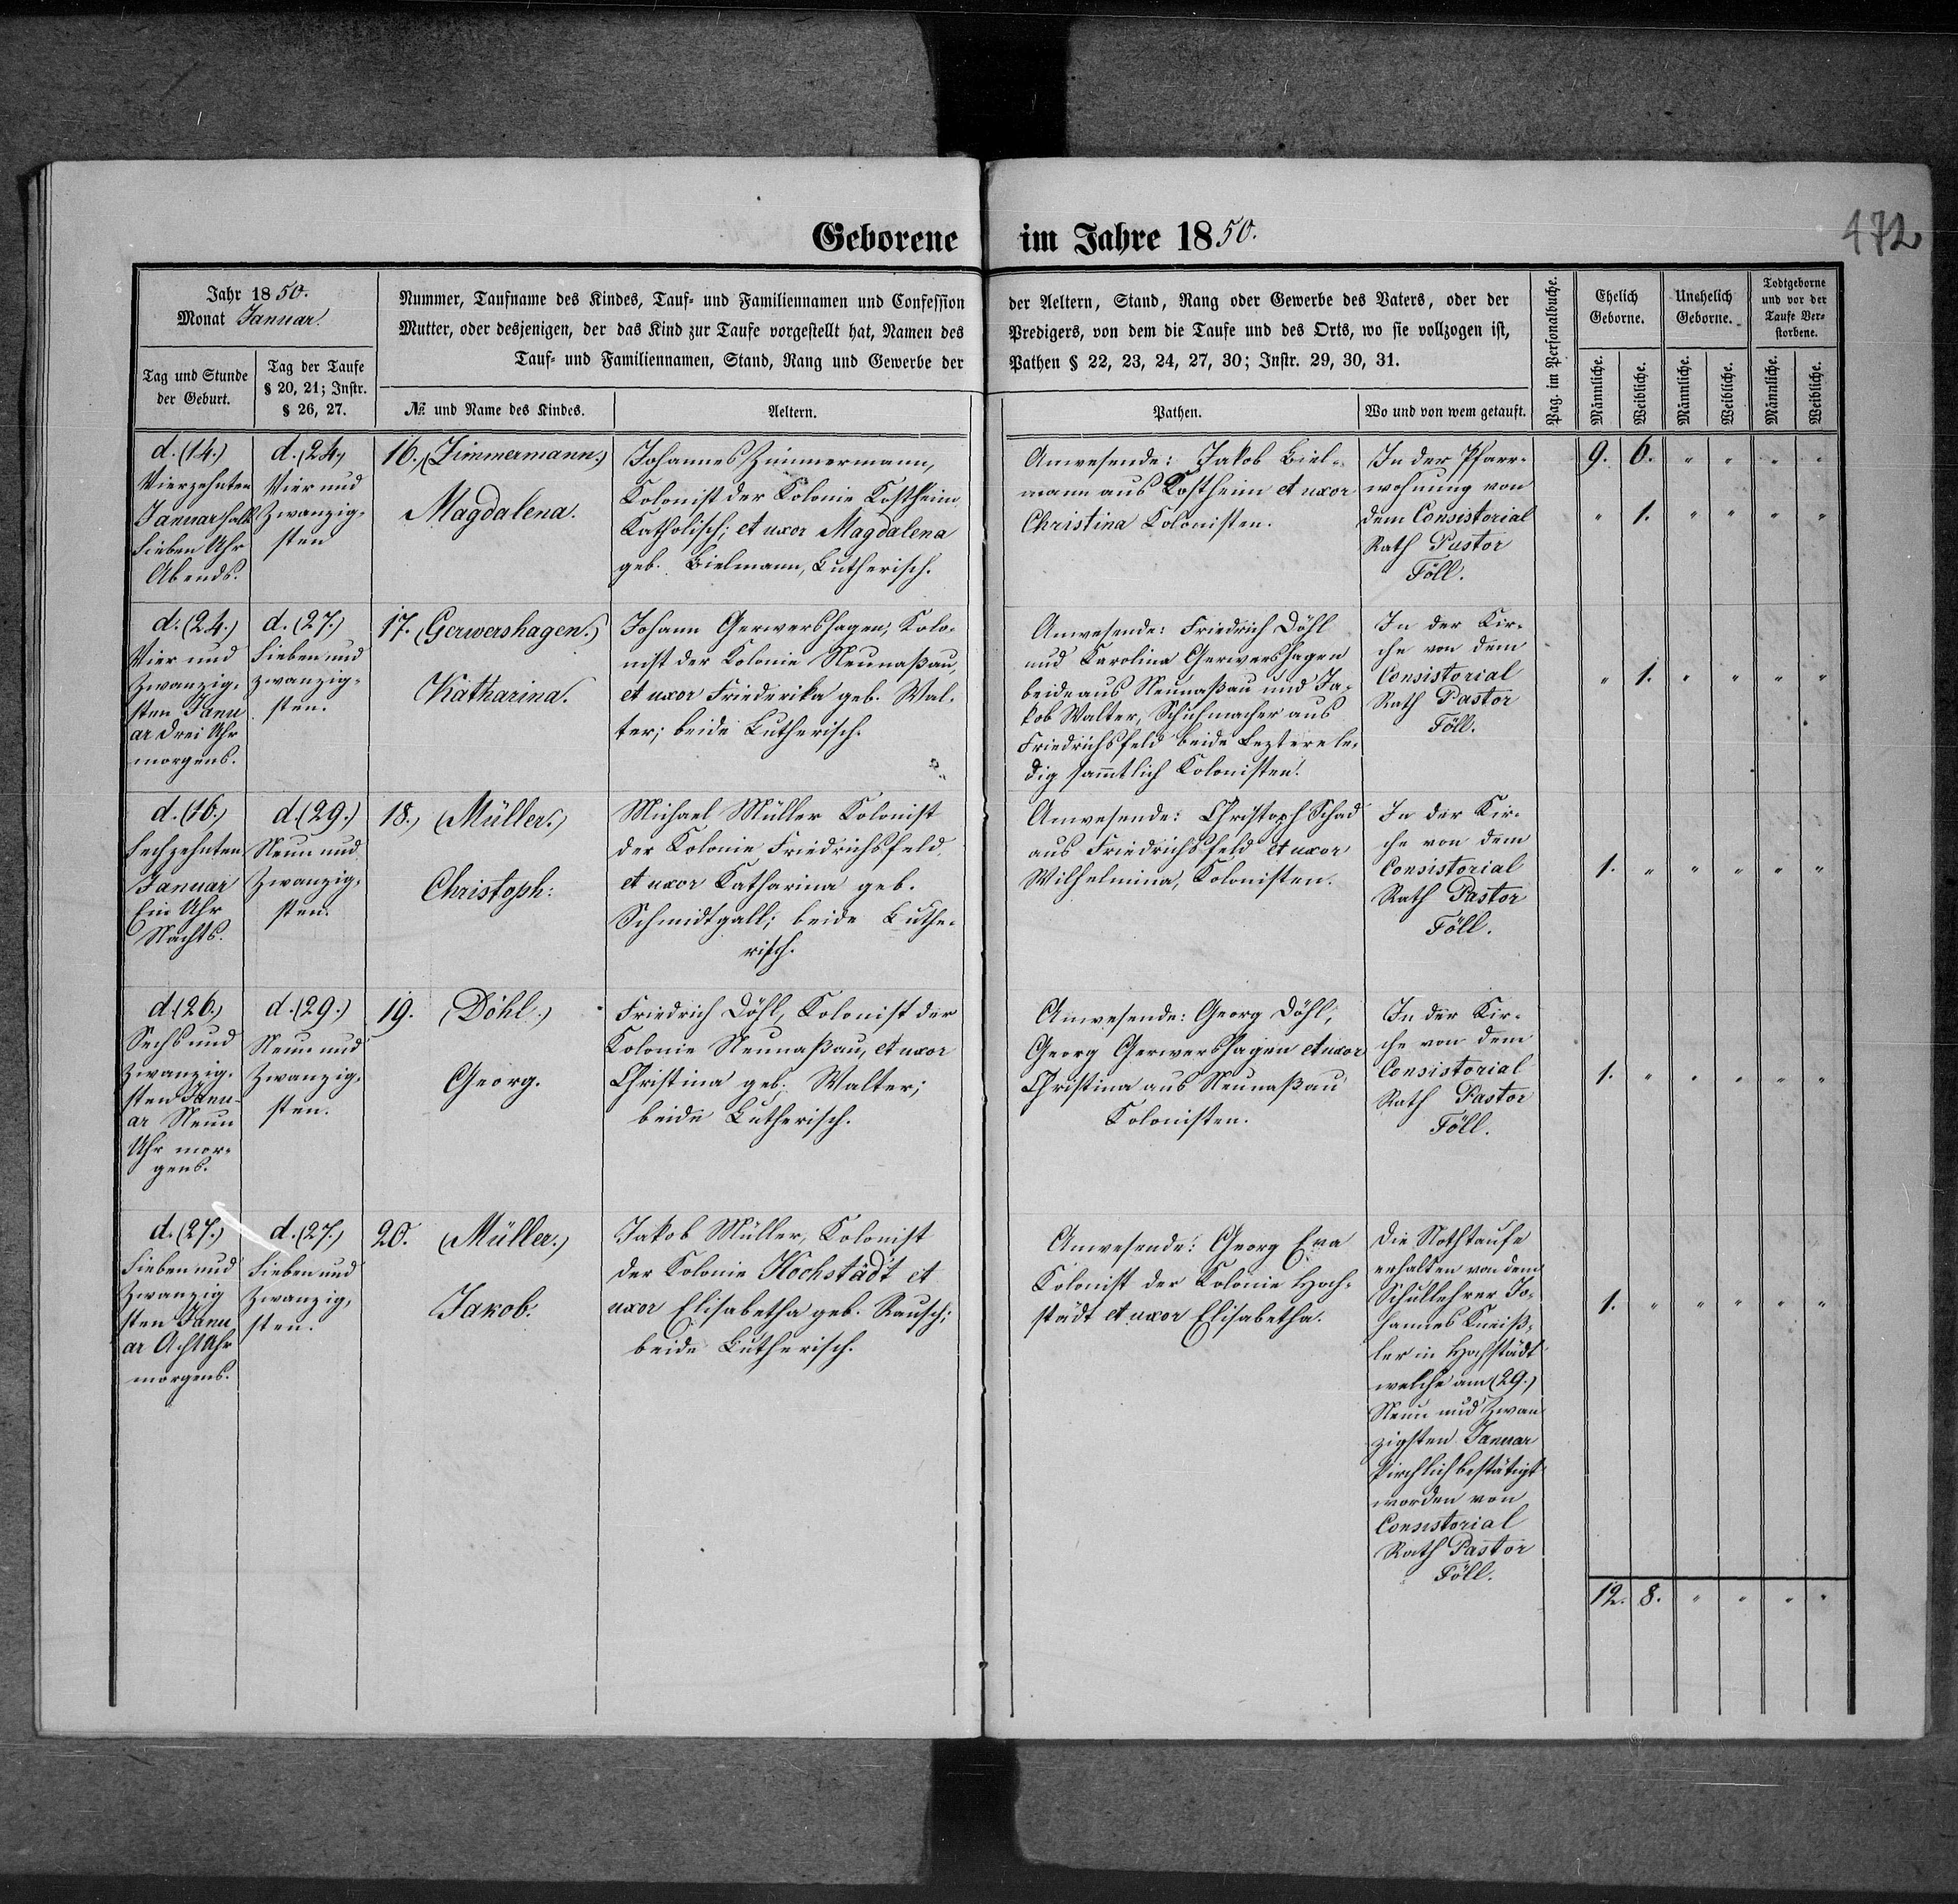 Geborene im Jahre 1850.
172
Jahr 1850.
Monat Januar.
Tag und Stunde
der Geburt.
Tag der Taufe
§ 20, 21; Instr.
§ 26, 27.
Nummer, Taufname des Kindes, Tauf- und Familiennamen und Confession
Mutter, oder desjenigen, der das Kind zur Taufe vorgestellt hat, Namen des
Tauf- und Familiennamen, Stand, Rang und Gewerbe der
№ und Name des Kindes.
Aeltern.
der Aeltern, Stand, Rang oder Gewerbe des Vaters, oder der
Predigers, von dem die Taufe und des Orts, wo sie vollzogen ist,
Pathen § 22, 23, 24, 27, 30; Instr. 29, 30, 31.
Pathen.
Wo und von wem getauft.
Pag. im Personalbuche.
Ehelich
Geborne.
Unehelich
Geborne.
Todtgeborne
und vor der
Taufe Ver-
storbene.
Männliche.
Weibliche.
Männliche.
Weibliche.
Männliche.
Weibliche.
d. (14.)
Vierzehnten
Januar halb
Sieben Uhr
Abends.
d. (24.)
Vier und
Zwanzig-
sten
16. (Zimmermann.)
Magdalena.
Johannes Zimmermann,
Kolonist der Kolonie Kostheim
Katholisch; et uxor Magdalena
geb. Bielmann, Lutherisch.
Anwesende: Jakob Biel-
mann aus Kostheim et uxor
Christina Kolonisten.
In der Pfarr-
wohnung von
dem Consistorial
Rath Pastor
Föll.
9. 6. " " " "
" 1. " " " "
d. (24.)
Vier und
zwanzig-
sten Janu
ar Drei Uhr
morgens.
d. (27.)
Sieben und
zwanzig-
sten.
17. (Gerwershagen.)
Katharina.
Johann Gerwershagen, Kolo-
nist der Kolonie Neunaßau,
et uxor Friederika geb. Wal-
ter; beide Lutherisch.
Anwesende: Friedrich Döhl
und Karolina Gerwershagen
beide aus Neunaßau und Ja-
kob Walter, Schuhmacher aus
Friedrichsfeld beide Leztere le-
dig sammtlich Kolonisten.
In der Kir-
che von dem
Consistorial
Rath Pastor
Föll.
" 1. " " " "
d. (16.)
Sechzehnten
Januar
Ein Uhr
Nachts.
d. (29.)
Neun und
Zwanzig-
sten.
18. (Müller.)
Christoph:
Michael Müller Kolonist
der Kolonie Friedrichsfeld
et uxor Katharina geb.
Schmidtgall; beide Luthe-
risch.
Anwesende: Christoph Schad
aus Friedrichsfeld et uxor
Wilhelmina, Kolonisten.
In der Kir-
che von dem
Consistorial
Rath Pastor
Föll.
1. " " " " "
d. (26.)
Sechs und
zwanzig-
sten Janu-
ar Neun
Uhr mor-
gens.
d. (29.)
Neun und
Zwanzig-
sten.
19. (Döhl.)
Georg.
Friedrich Döhl, Kolonist der
Kolonie Neunaßau, et uxor
Christina geb. Walter;
beide Lutherisch.
Anwesende: Georg Döhl,
Georg Gerwershagen et uxor
Christina aus Neunaßau
Kolonisten.
In der Kir-
che von dem
Consistorial
Rath Pastor
Föll.
1. " " " " "
d. (27.)
Sieben und
Zwanzig
sten Janu
ar Acht Uhr
morgens.
d. (27.)
Sieben und
Zwanzig-
sten.
20. (Müller.)
Jakob.
Jakob Müller, Kolonist
der Kolonie Hochstädt et
uxor Elisabetha geb. Rausch;
beide Lutherisch.
Anwesende: Georg
Kolonist der Kolonie Hoch-
städt et uxor Elisabetha.
Die Nothtaufe
erhalten von dem
Schullehrer Jo-
hannes Kneiß-
ler in Hochstädt
welche am (29.)
Neun und Zwan
zigsten Januar
kirchlich bestätigt
worden von
Consistorial
Rath Pastor
Föll.
1. " " " " "
12. 8. " " " "